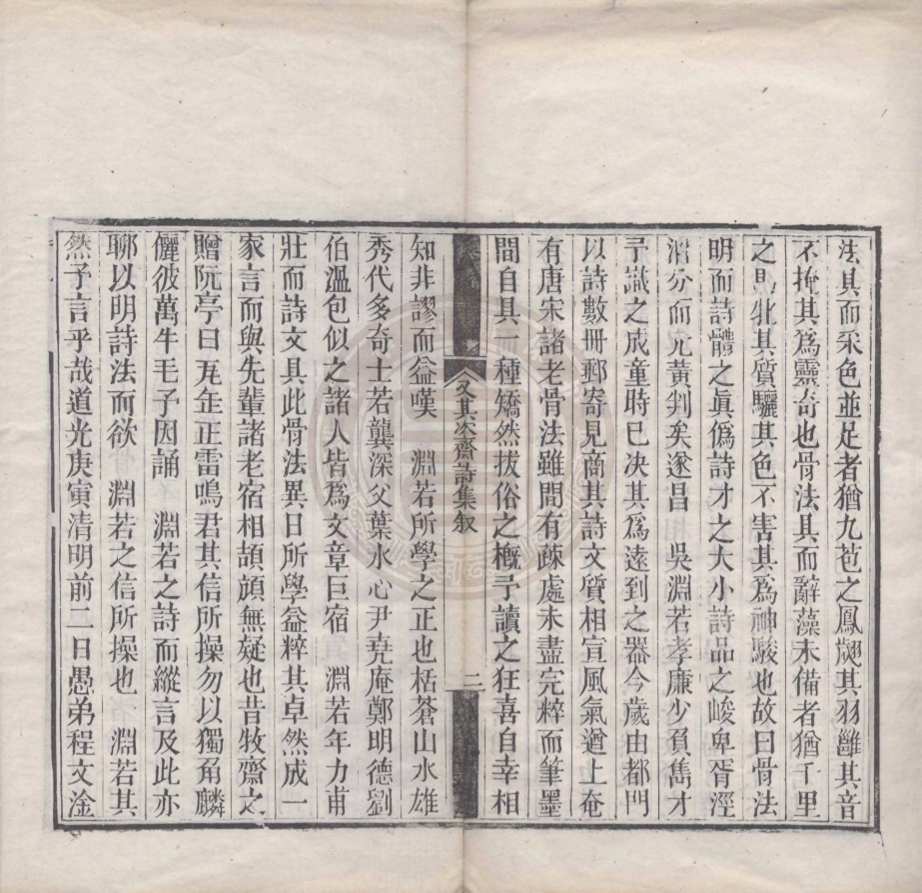 法具而采色並足者猶九苞之鳳翽其羽雝其音
不掩其爲靈奇也骨法具而辭藻未備者猶千里
之馬牝其質驪其色不害其爲神駿也故曰骨法
明而詩體之眞僞詩才之大小詩品之峻卑胥涇
渭分而元黃判矣遂昌　吳淵若孝廉少負雋才
予識之成童時已决其爲遠到之器今歲由都門
以詩數册郵寄見商其詩文質相宣風氣遒上奄
有唐宋諸老骨法雖間有疎處未盡完粹而筆墨
間自具一種矯然拔俗之槪予讀之狂喜自幸相
又其次齋詩集叙
二
知非謬而益嘆　淵若所學之正也栝蒼山水雄
秀代多奇士若龔深父葉水心尹堯庵鄭明德劉
伯溫包似之諸人皆爲文章巨宿　淵若年力甫
壯而詩文具此骨法異日所學益粹其卓然成一
家言而與先輩諸老宿相頡頏無疑也昔牧齋之
贈阮亭曰瓦缶正雷鳴君其信所操勿以獨角麟
儷彼萬牛毛予因誦　淵若之詩而縱言及此亦
聊以明詩法而欲　淵若之信所操也　淵若其
然予言乎哉道光庚寅清明前二日愚弟程文淦